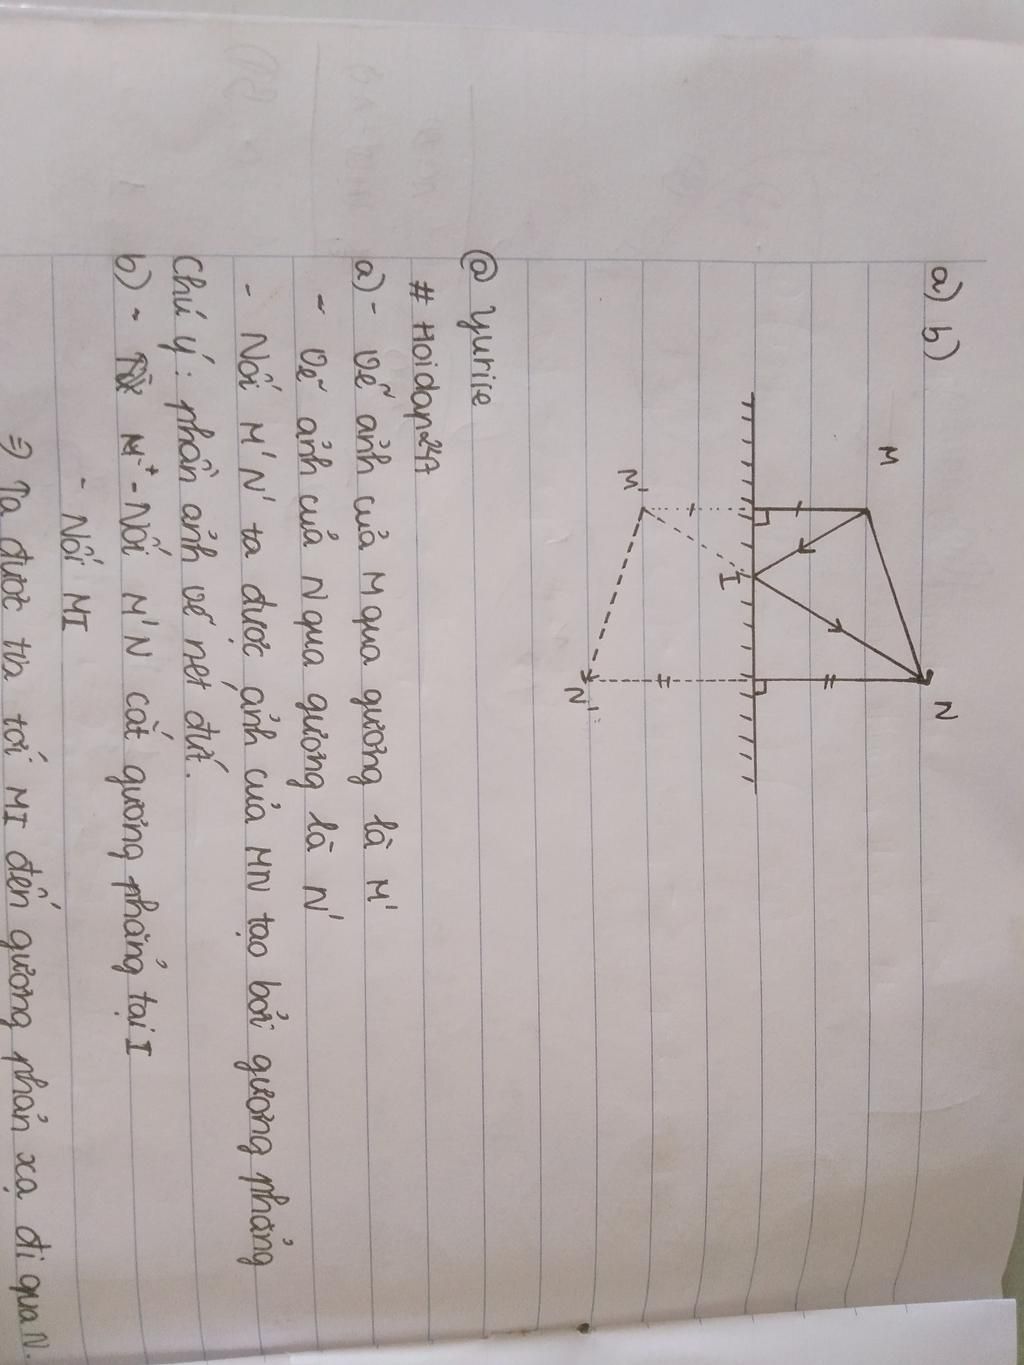 a) b)
M
N
I
M'
N'
@ yuriie
# Hoidap247
a) - Vẽ ảnh của M qua gương là M'
- Vẽ ảnh của N qua gương là N'
- Nối M'N' ta được ảnh của MN tạo bởi gương phẳng
Chú ý: phần ảnh vẽ nét đứt.
b) - - Nối M'N cắt gương phẳng tại I
- Nối MI
=) Ta được tia tới MI đến gương phản xạ đi qua N.